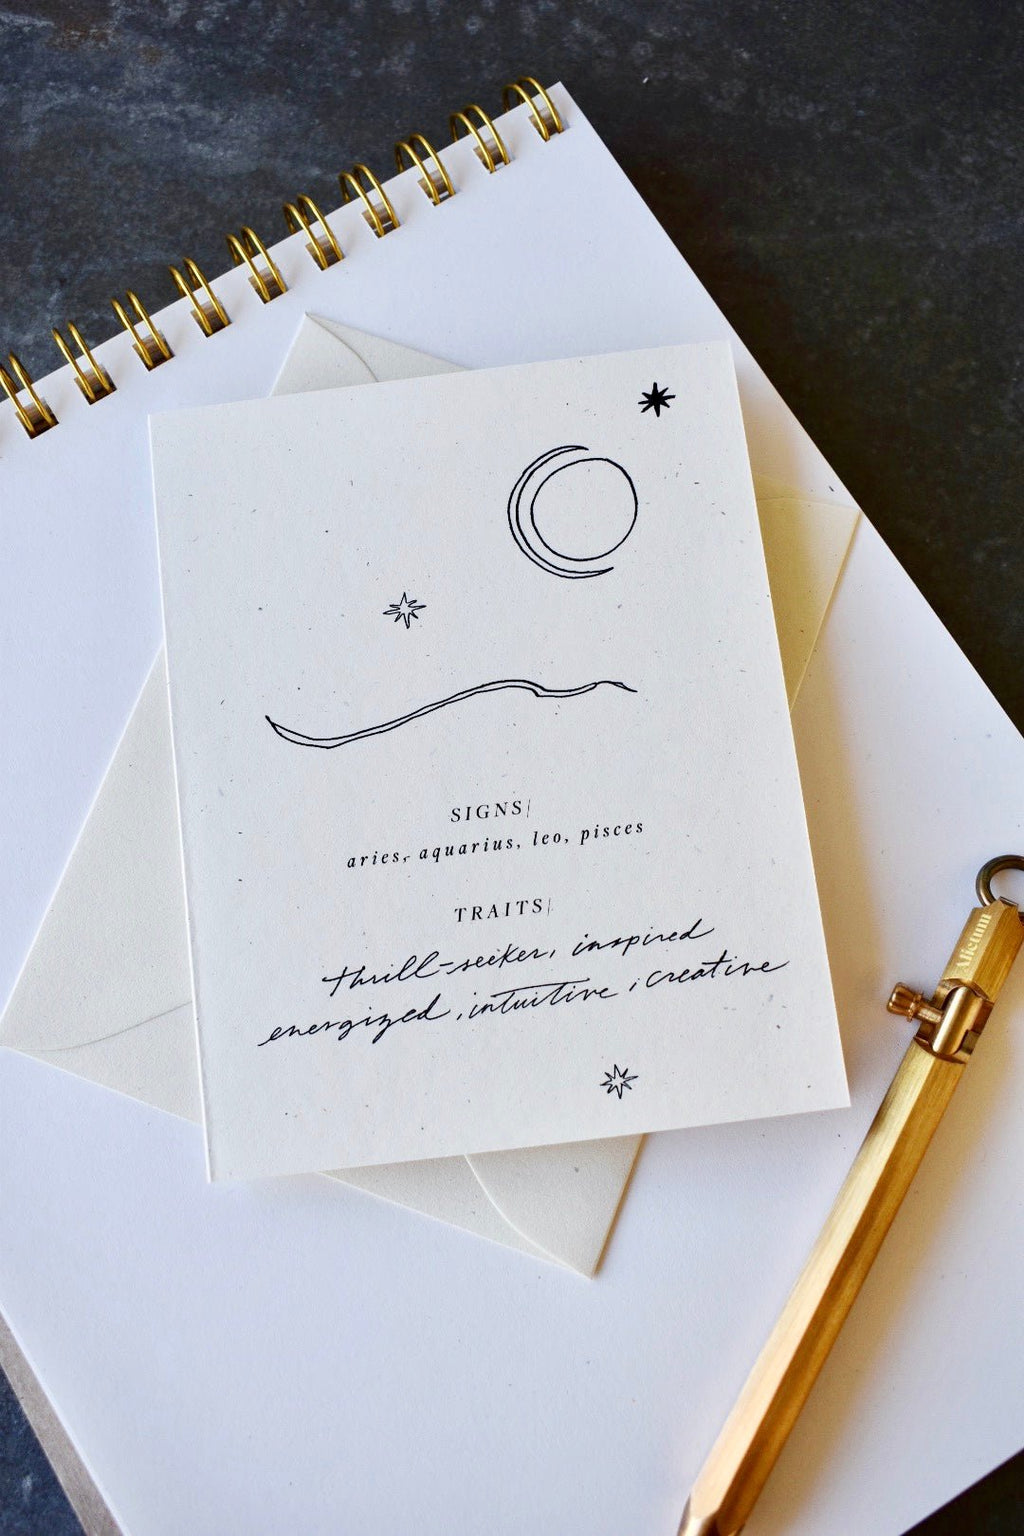 SIGNS|
aries, aquarius, leo, pisces
TRAITS|
thrill-seeker, inspired
energized, intuitive, creative